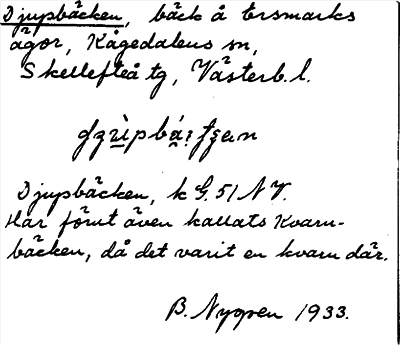 Djupbäcken, bäck å Ersmarks
ägor, Kågedalens sn,
Skellefteå tg, Västerb. l.
Djupbäcken, k G. 51 NV.
Har förut även kallats Kvarn-
bäcken, då det varit en kvarn där.
B. Nygren 1933.